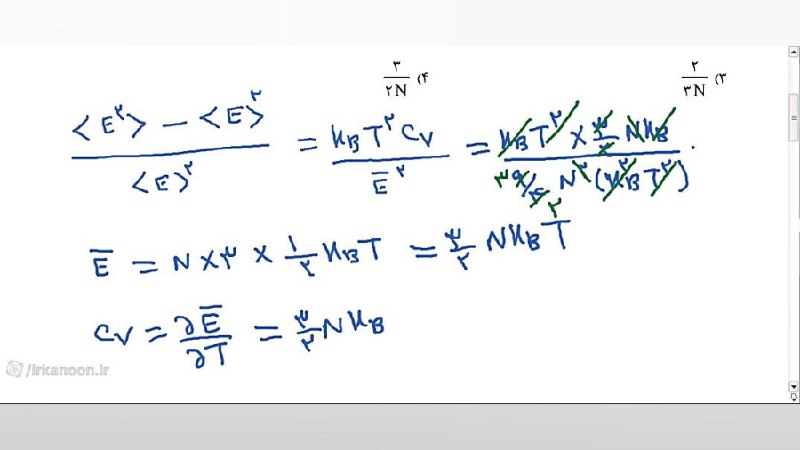 ۳) ۲/۳N   ۴) ۳/۲N
(<E^۲> − <E>^۲)/<E>^۲ = (K_B T^۲ C_V)/Ē^۲ = (K_B T^۲ × ۳/۲ N K_B)/(۹/۴ N^۲ (K_B^۲ T^۲)) ۳ ۲ .
Ē = N × ۳ × ۱/۲ K_B T = ۳/۲ N K_B T
C_V = ∂Ē/∂T = ۳/۲ N K_B
/irkanoon.ir